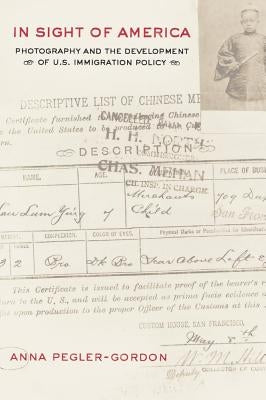 IN SIGHT OF AMERICA
PHOTOGRAPHY AND THE DEVELOPMENT
OF U.S. IMMIGRATION POLICY
DESCRIPTIVE LIST OF CHINESE ME
Certificate furnished to
Chinese
the United States to be produced to the
urn.
CANCELLED
H. H. NORTH
DESCRIPTION
CHAS. MEHAN
CH. INSP. IN CHARGE.
NAME. AGE. PLACE OF BUS
Merchants 709 Du
Lum Ying 7 Child San Fra
COMPLEXION. COLOR OF EYES. Physical Marks or Peculiarities
2 Bro Dk Bro Scar Above Left
This Certificate is issued to facilitate proof of the bearer's r
turn to the U. S., and will be accepted as prima facie evidence
on presentation to the proper Officer of the Customs at
CUSTOM HOUSE, SAN FRANCISCO,
May 8th
ANNA PEGLER-GORDON
Deputy COLLECTOR OF